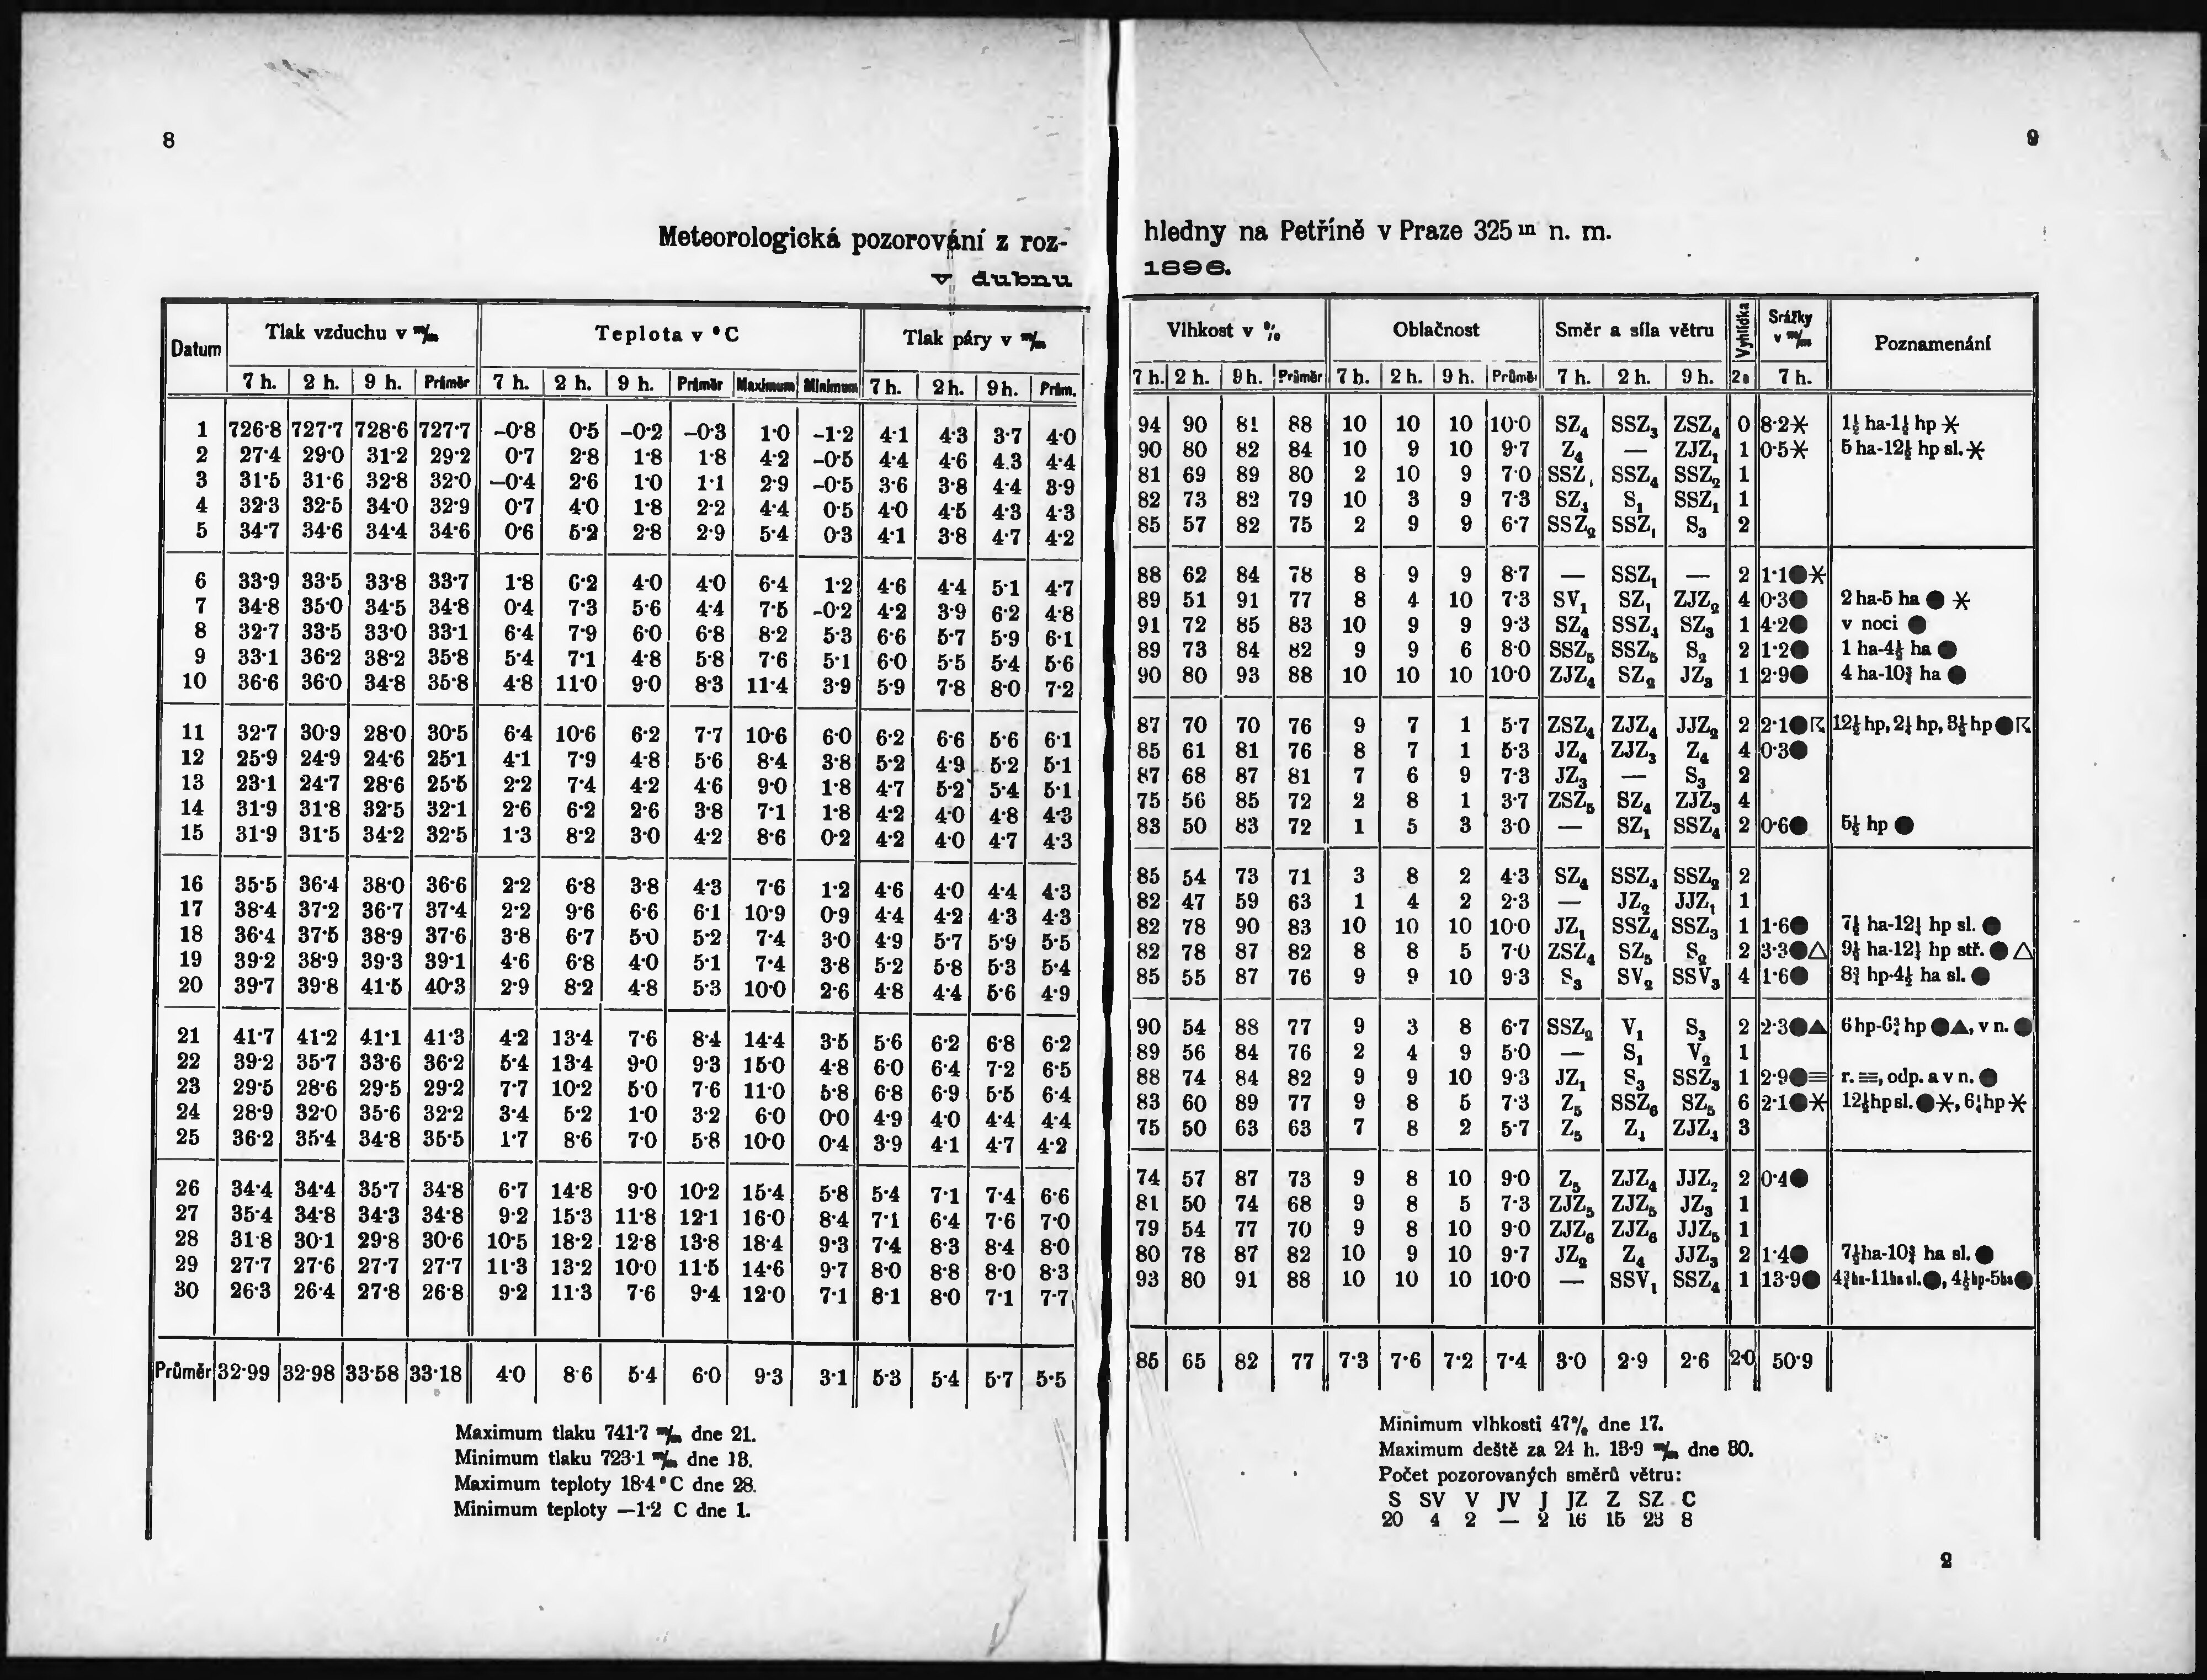 8
Meteorologická pozorování z roz-
v dubnu
Datum Tlak vzduchu v m/m Teplota v °C Tlak páry v m/m
7 h. 2 h. 9 h. Průměr 7 h. 2 h. 9 h. Průměr Maximum Minimum 7 h. 2 h. 9 h. Prům.
1 726·8 727·7 728·6 727·7 -0·8 0·5 -0·2 -0·3 1·0 -1·2 4·1 4·3 3·7 4·0
2 27·4 29·0 31·2 29·2 0·7 2·8 1·8 1·8 4·2 -0·5 4·4 4·6 4.3 4·4
3 31·5 31·6 32·8 32·0 -0·4 2·6 1·0 1·1 2·9 -0·5 3·6 3·8 4·4 3·9
4 32·3 32·5 34·0 32·9 0·7 4·0 1·8 2·2 4·4 0·5 4·0 4·5 4·3 4·3
5 34·7 34·6 34·4 34·6 0·6 5·2 2·8 2·9 5·4 0·3 4·1 3·8 4·7 4·2
6 33·9 33·5 33·8 33·7 1·8 6·2 4·0 4·0 6·4 1·2 4·6 4·4 5·1 4·7
7 34·8 35·0 34·5 34·8 0·4 7·3 5·6 4·4 7·5 -0·2 4·2 3·9 6·2 4·8
8 32·7 33·5 33·0 33·1 6·4 7·9 6·0 6·8 8·2 5·3 6·6 5·7 5·9 6·1
9 33·1 36·2 38·2 35·8 5·4 7·1 4·8 5·8 7·6 5·1 6·0 5·5 5·4 5·6
10 36·6 36·0 34·8 35·8 4·8 11·0 9·0 8·3 11·4 3·9 5·9 7·8 8·0 7·2
11 32·7 30·9 28·0 30·5 6·4 10·6 6·2 7·7 10·6 6·0 6·2 6·6 5·6 6·1
12 25·9 24·9 24·6 25·1 4·1 7·9 4·8 5·6 8·4 3·8 5·2 4·9 5·2 5·1
13 23·1 24·7 28·6 25·5 2·2 7·4 4·2 4·6 9·0 1·8 4·7 5·2 5·4 5·1
14 31·9 31·8 32·5 32·1 2·6 6·2 2·6 3·8 7·1 1·8 4·2 4·0 4·8 4·3
15 31·9 31·5 34·2 32·5 1·3 8·2 3·0 4·2 8·6 0·2 4·2 4·0 4·7 4·3
16 35·5 36·4 38·0 36·6 2·2 6·8 3·8 4·3 7·6 1·2 4·6 4·0 4·4 4·3
17 38·4 37·2 36·7 37·4 2·2 9·6 6·6 6·1 10·9 0·9 4·4 4·2 4·3 4·3
18 36·4 37·5 38·9 37·6 3·8 6·7 5·0 5·2 7·4 3·0 4·9 5·7 5·9 5·5
19 39·2 38·9 39·3 39·1 4·6 6·8 4·0 5·1 7·4 3·8 5·2 5·8 5·3 5·4
20 39·7 39·8 41·5 40·3 2·9 8·2 4·8 5·3 10·0 2·6 4·8 4·4 5·6 4·9
21 41·7 41·2 41·1 41·3 4·2 13·4 7·6 8·4 14·4 3·5 5·6 6·2 6·8 6·2
22 39·2 35·7 33·6 36·2 5·4 13·4 9·0 9·3 15·0 4·8 6·0 6·4 7·2 6·5
23 29·5 28·6 29·5 29·2 7·7 10·2 5·0 7·6 11·0 5·8 6·8 6·9 5·5 6·4
24 28·9 32·0 35·6 32·2 3·4 5·2 1·0 3·2 6·0 0·0 4·9 4·0 4·4 4·4
25 36·2 35·4 34·8 35·5 1·7 8·6 7·0 5·8 10·0 0·4 3·9 4·1 4·7 4·2
26 34·4 34·4 35·7 34·8 6·7 14·8 9·0 10·2 15·4 5·8 5·4 7·1 7·4 6·6
27 35·4 34·8 34·3 34·8 9·2 15·3 11·8 12·1 16·0 8·4 7·1 6·4 7·6 7·0
28 31·8 30·1 29·8 30·6 10·5 18·2 12·8 13·8 18·4 9·3 7·4 8·3 8·4 8·0
29 27·7 27·6 27·7 27·7 11·3 13·2 10·0 11·5 14·6 9·7 8·0 8·8 8·0 8·3
30 26·3 26·4 27·8 26·8 9·2 11·3 7·6 9·4 12·0 7·1 8·1 8·0 7·1 7·7
Průměr 32·99 32·98 33·58 33·18 4·0 8·6 5·4 6·0 9·3 3·1 5·3 5·4 5·7 5·5
Maximum tlaku 741·7 m/m dne 21.
Minimum tlaku 723·1 m/m dne 13.
Maximum teploty 18·4°C dne 28.
Minimum teploty —1·2 C dne 1.
9
hledny na Petříně v Praze 325 m n. m.
1896.
Vlhkost v % Oblačnost Směr a síla větru Vyhlídka Srážky v m/m Poznamenání
7 h. 2 h. 9 h. Průměr 7 h. 2 h. 9 h. Průměr 7 h. 2 h. 9 h. 2h 7 h.
94 90 81 88 10 10 10 10·0 SZ₄ SSZ₃ ZSZ₄ 0 8·2✳ 1½ ha-1½ hp ✳
90 80 82 84 10 9 10 9·7 Z₄ — ZJZ₁ 1 0·5✳ 5 ha-12½ hp sl. ✳
81 69 89 80 2 10 9 7·0 SSZ₁ SSZ₄ SSZ₂ 1
82 73 82 79 10 3 9 7·3 SZ₄ S₁ SSZ₁ 1
85 57 82 75 2 9 9 6·7 SSZ₂ SSZ₁ S₃ 2
88 62 84 78 8 9 9 8·7 — SSZ₁ — 2 1·1●✳
89 51 91 77 8 4 10 7·3 SV₁ SZ₁ ZJZ₂ 4 0·3● 2 ha-5 ha ● ✳
91 72 85 83 10 9 9 9·3 SZ₄ SSZ₄ SZ₃ 1 4·2● v noci ●
89 73 84 82 9 9 6 8·0 SSZ₅ SSZ₅ S₂ 2 1·2● 1 ha-4½ ha ●
90 80 93 88 10 10 10 10·0 ZJZ₄ SZ₂ JZ₃ 1 2·9● 4 ha-10¾ ha ●
87 70 70 76 9 7 1 5·7 ZSZ₄ ZJZ₄ JJZ₂ 2 2·1●☈ 12½ hp, 2½ hp, 3½ hp ●☈
85 61 81 76 8 7 1 5·3 JZ₄ ZJZ₃ Z₄ 4 0·3●
87 68 87 81 7 6 9 7·3 JZ₃ — S₃ 2
75 56 85 72 2 8 1 3·7 ZSZ₅ SZ₄ ZJZ₃ 4
83 50 83 72 1 5 3 3·0 — SZ₁ SSZ₄ 2 0·6● 5½ hp ●
85 54 73 71 3 8 2 4·3 SZ₄ SSZ₄ SSZ₂ 2
82 47 59 63 1 4 2 2·3 — JZ₂ JJZ₁ 1
82 78 90 83 10 10 10 10·0 JZ₁ SSZ₄ SSZ₃ 1 1·6● ha- hp sl. ●
82 78 87 82 8 8 5 7·0 ZSZ₄ SZ₅ S₂ 2 3·3●△ ha- hp stř. ● △
85 55 87 76 9 9 10 9·3 S₃ SV₂ SSV₃ 4 1·6● 8¾ hp-4½ ha sl. ●
90 54 88 77 9 3 8 6·7 SSZ₂ V₁ S₃ 2 2·3●▲ 6 hp-6¾ hp ●▲, v n. ●
89 56 84 76 2 4 9 5·0 — S₁ V₂ 1
88 74 84 82 9 9 10 9·3 JZ₁ S₃ SSZ₃ 1 2·9●≡ r. ≡, odp. a v n. ●
83 60 89 77 9 8 5 7·3 Z₅ SSZ₆ SZ₅ 6 2·1●✳ 12½ hp sl. ●✳, hp ✳
75 50 63 63 7 8 2 5·7 Z₅ Z₄ ZJZ₄ 3
74 57 87 73 9 8 10 9·0 Z₅ ZJZ₄ JJZ₂ 2 0·4●
81 50 74 68 9 8 5 7·3 ZJZ₅ ZJZ₅ JZ₃ 1
79 54 77 70 9 8 10 9·0 ZJZ₆ ZJZ₆ JJZ₅ 1
80 78 87 82 10 9 10 9·7 JZ₂ Z₄ JJZ₃ 2 1·4● 7½ ha-10¾ ha sl. ●
93 80 91 88 10 10 10 10·0 — SSV₁ SSZ₄ 1 13·9● 4¾ ha-11 ha sl. ●, 4½ hp-5 ha ●
85 65 82 77 7·3 7·6 7·2 7·4 3·0 2·9 2·6 2·0 50·9
Minimum vlhkosti 47% dne 17.
Maximum deště za 24 h. 13·9 m/m dne 30.
Počet pozorovaných směrů větru:
S SV V JV J JZ Z SZ C
20 4 2 — 2 16 15 23 8
2